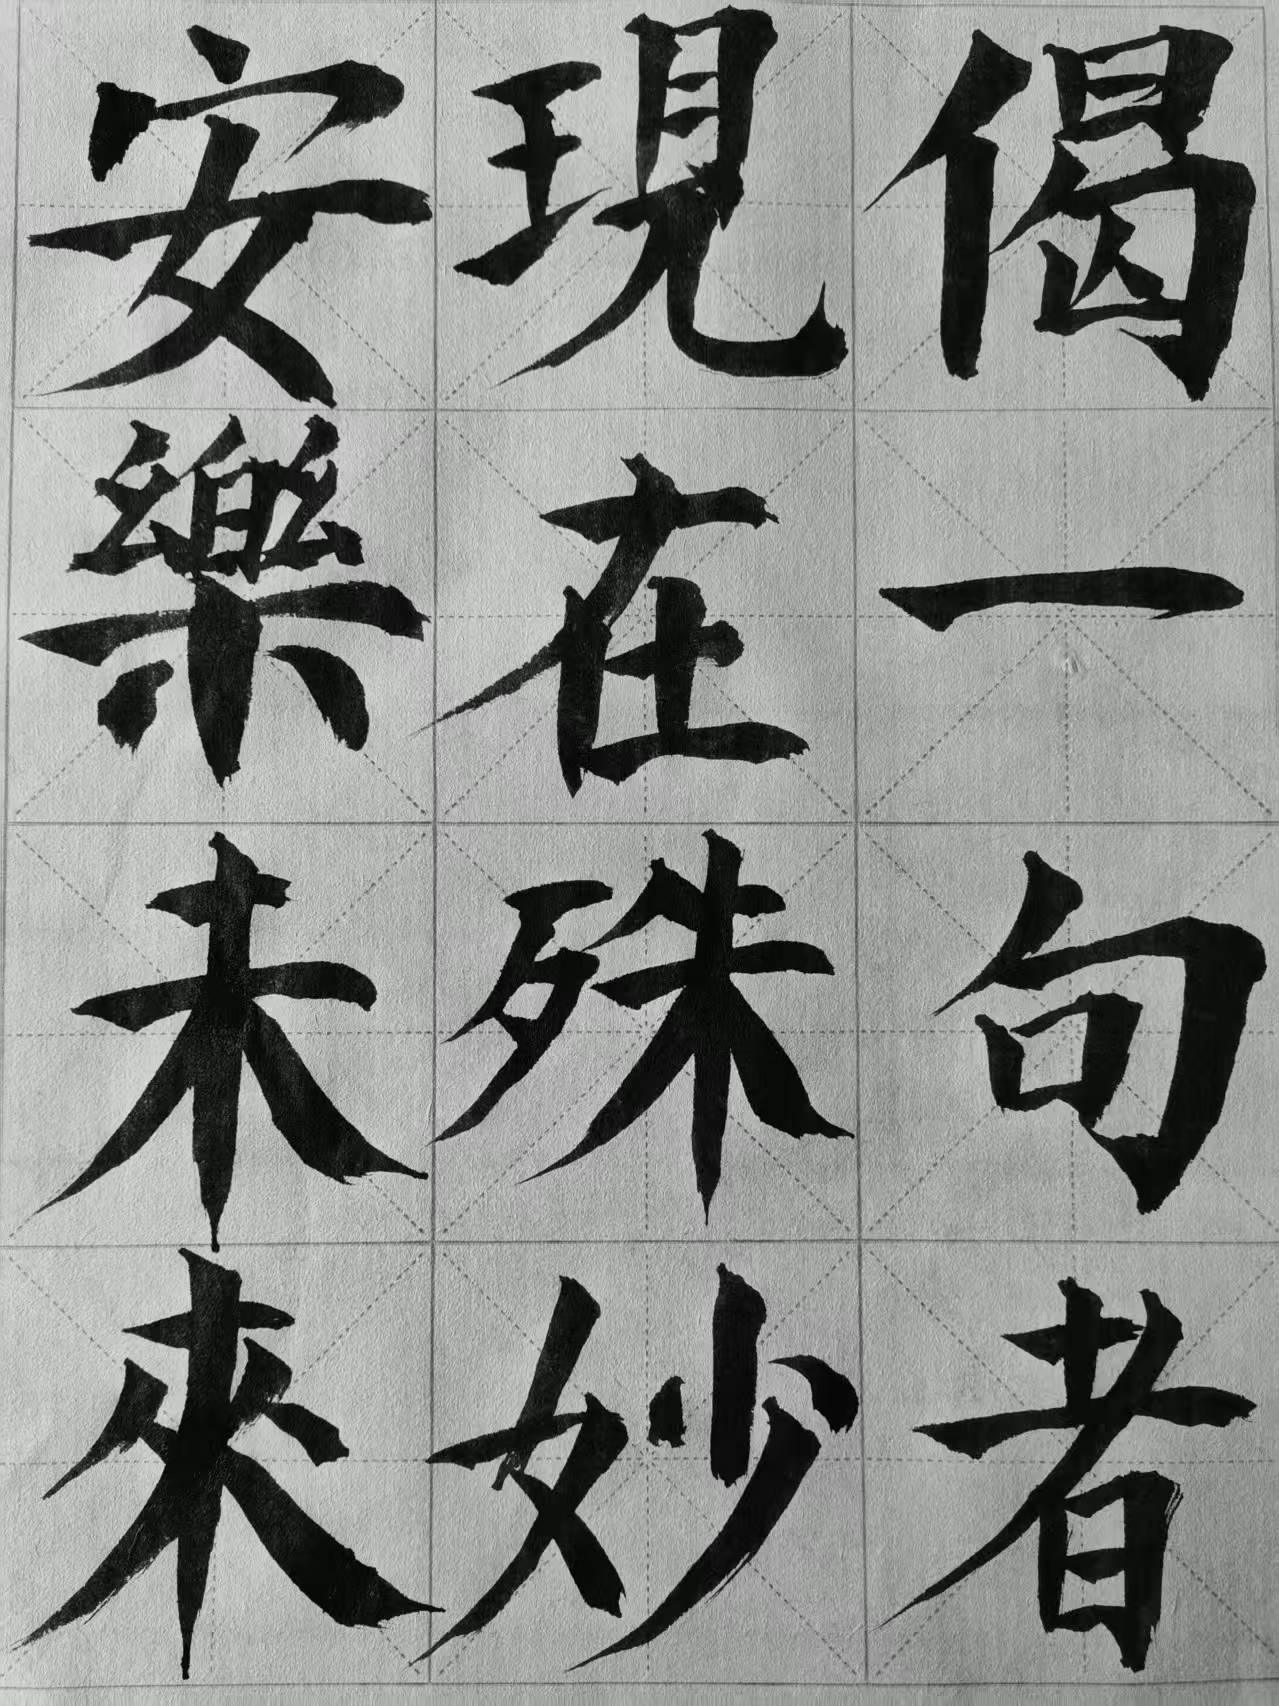 偈一句者
現在殊妙
安樂未來